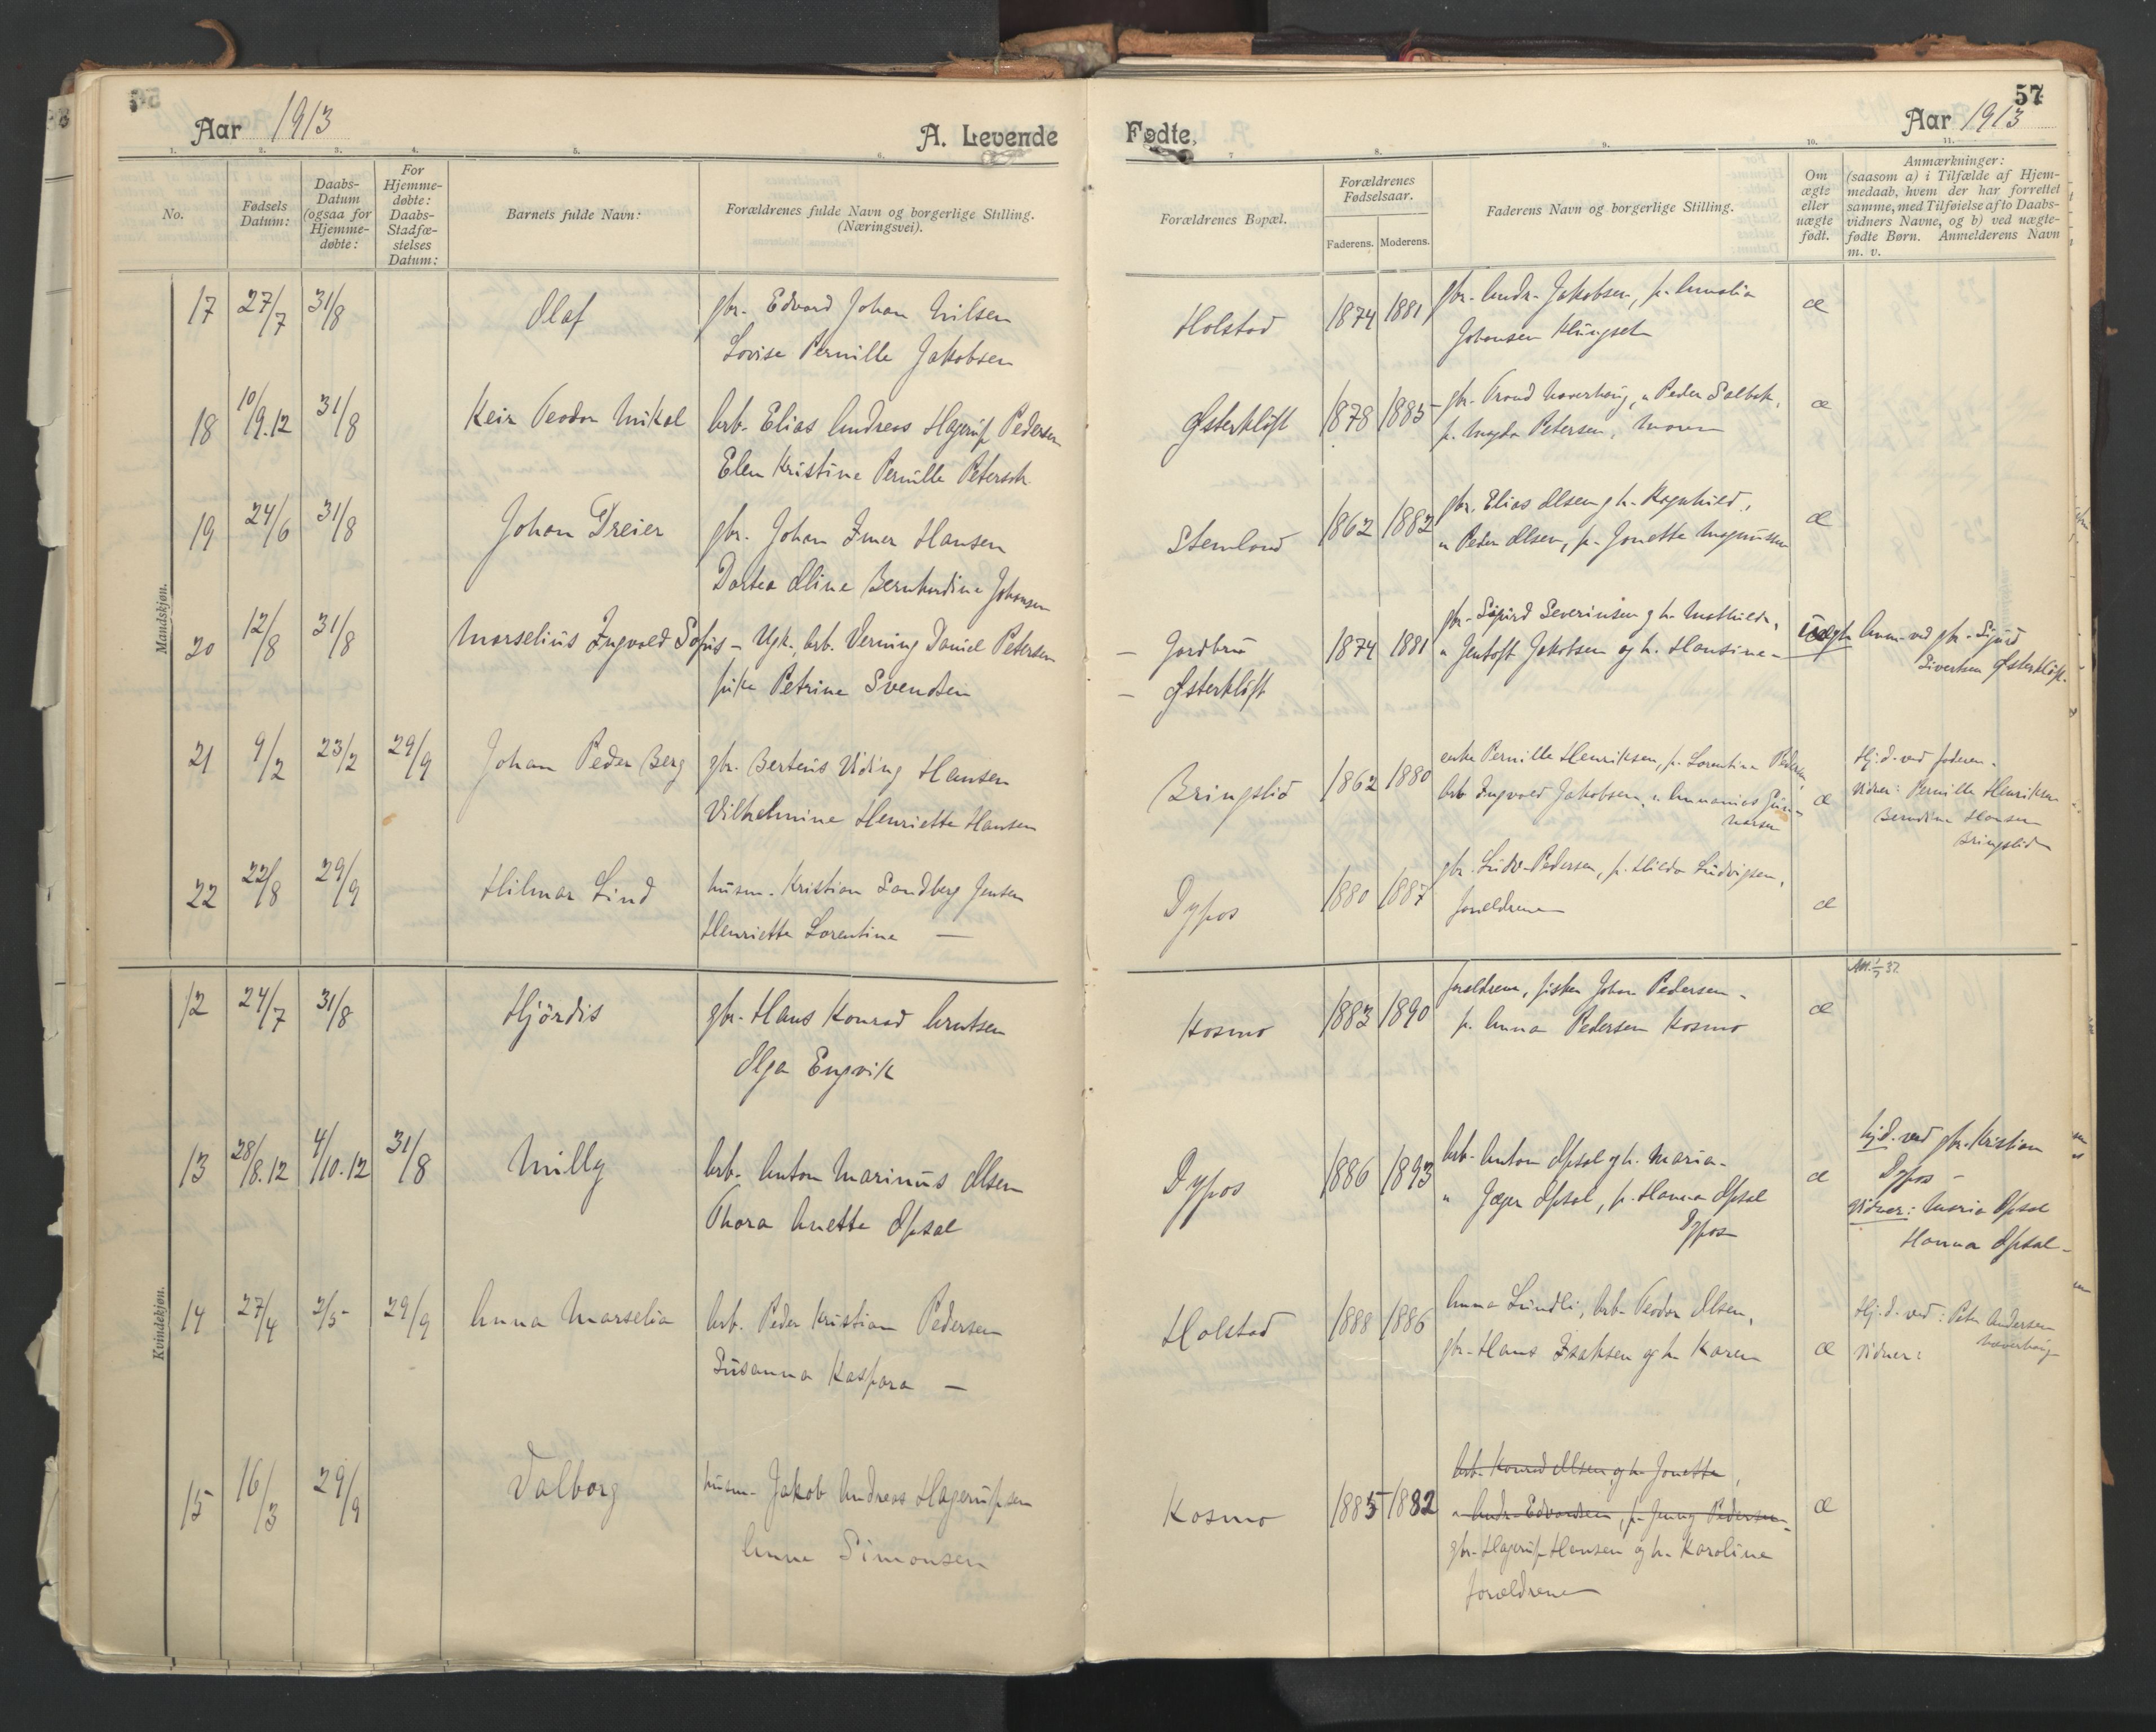 Aar 1913
A. Levende
1. 2. 3. 4. 5. 6.
No.
Fødsels Datum:
Daabs-Datum (ogsaa for Hjemme-døbte:
For Hjemme-døbte: Daabs-Stadfæ-stelses Datum:
Barnets fulde Navn:
Forældrenes fulde Navn og borgerlige Stilling. (Næringsvei).
Mandskjøn.
17 27/7 31/8 Olaf gbr. Edvard Johan Nilsen
Lovise Pernille Jakobsen
18 10/9.12 31/8 Keir Teodor Mikal arb. Elias Andreas Hagerup Pedersen
Elen Kristine Pernille
19 24/6 31/8 Johan Dreier gbr. Johan Hansen
Dortea Oline Bernhardine Johansen
20 12/8 31/8 Marselius Ingvald Sofus – Ugk. arb. Verning Daniel Petersen
pike Petrine Svendsen
21 9/2 23/2 29/9 Johan Peder Berg gbr. Berteus Uding Hansen
Vilhelmine Henriette Hansen
22 22/8 29/9 Hilmar Lind husm. Kristian Sandberg Jensen
Henriette Lorentine —
Kvindekjøn.
12 24/7 31/8 Hjördis gbr. Hans Konrad Arntsen
Olga Engvik
13 28/8.12 4/10.12 31/8 Milly arb. Anton Marinus Olsen
Thora Anette Opsal
14 27/4 2/5 29/9 Anna Marselia arb. Peder Kristian Pedersen
Susanna Kaspara —
15 16/3 29/9 Valborg husm. Jakob Andreas Hagerupsen
Anna Simonsen
57
Fødte,
Aar 1913
7 8. 9. 10. 11.
Forældrenes Bopæl.
Forældrenes Fødselsaar.
Faderens. Moderens.
Faderens Navn og borgerlige Stilling.
Om ægte eller uægte født.
Anmærkninger:
(saasom a) i Tilfælde af Hjem-
medaab, hvem der har forrettet
samme, med Tilføielse af to Daabs-
vidners Navne, og b) ved uægte-
fødte Børn. Anmelderens Navn
m. v.
Holstad 1874 1881 gbr. Andr. Jakobsen, p. Amalia æ
Johansen Klungset
Østerkløft 1878 1885 gbr. Trond Naverhaug, " Peder Salbak, æ
p. Magda Petersen, Moren
Stemland 1862 1882 gbr. Elias Olsen og h. Ragnhild, æ
" Peder Olsen, p. Jonette Magnussen
– Jordbru 1874 1881 gbr. Sigurd Severinsen og h. Mathilde, Uægte Anm. ved gbr. Sigurd
– Østerkløft " Jentoft Jakobsen og h. Hansine – Sivertsen Østerkløft.
Bringslid 1862 1880 enke Pernille Henriksen, p. Lorentine Pedersen, Hj.d. ved faderen.
arb. Ingvald Jakobsen, " Annanias Gun- æ Vidner: Pernille Henriksen
narsen Berndine Hansen
Bringslid
Dypos 1880 1887 gbr. Ludv. Pedersen, p. Hilda Ludvigsen, æ
foreldrene
Kosmo 1883 1890 foreldrene, fisker Johan Pedersen – æ
p. Anna Pedersen Kosmo
Dypos 1886 1893 arb. Anton Opsal og h. Maria – æ hj.d. ved gbr. Kristian
" Jæger Opsal, p. Hanna Opsal Dypos –
Dypos Vidner: Maria Opsal
Hanna Opsal –
Holstad 1888 1886 Anna Lundli, arb. Teodor Olsen, Hj.d. ved: Peter Andersen
Naverhaug
gbr. Hans Isaksen og h. Karen æ Vidner:
Kosmo 1885 1882 arb. Konrad Olsen og h. Jonette, æ
" Andr. Edvardsen, p. Jenny Pedersen –
gbr. Hagerup Hansen og h. Karoline
foreldrene